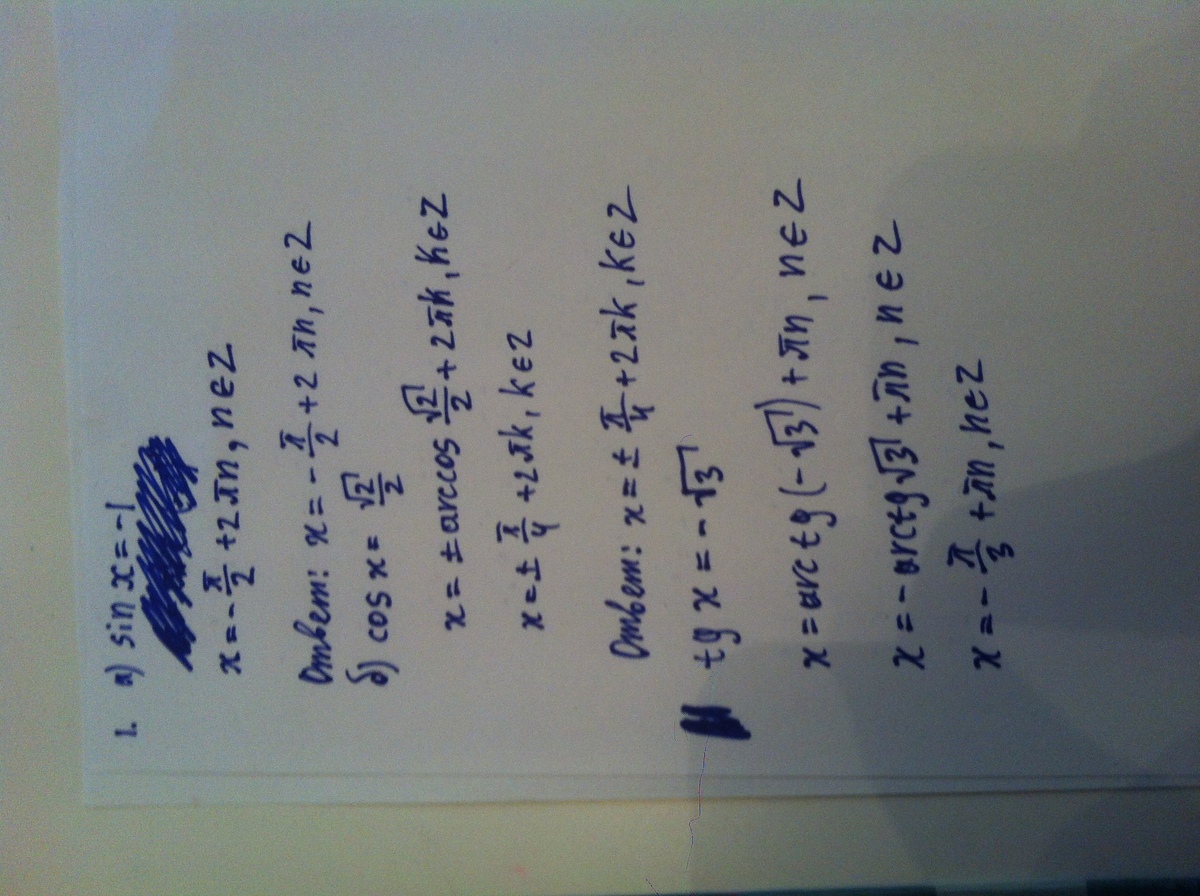 1. а) sin x = -1
x = -π/2 + 2πn, n ∈ Z
Ответ: x = -π/2 + 2πn, n ∈ Z
б) cos x = √2/2
x = ± arccos √2/2 + 2πk, k ∈ Z
x = ± π/4 + 2πk, k ∈ Z
Ответ: x = ± π/4 + 2πk, k ∈ Z
tg x = -√3
x = arctg(-√3) + πn, n ∈ Z
x = -arctg√3 + πn, n ∈ Z
x = -π/3 + πn, n ∈ Z